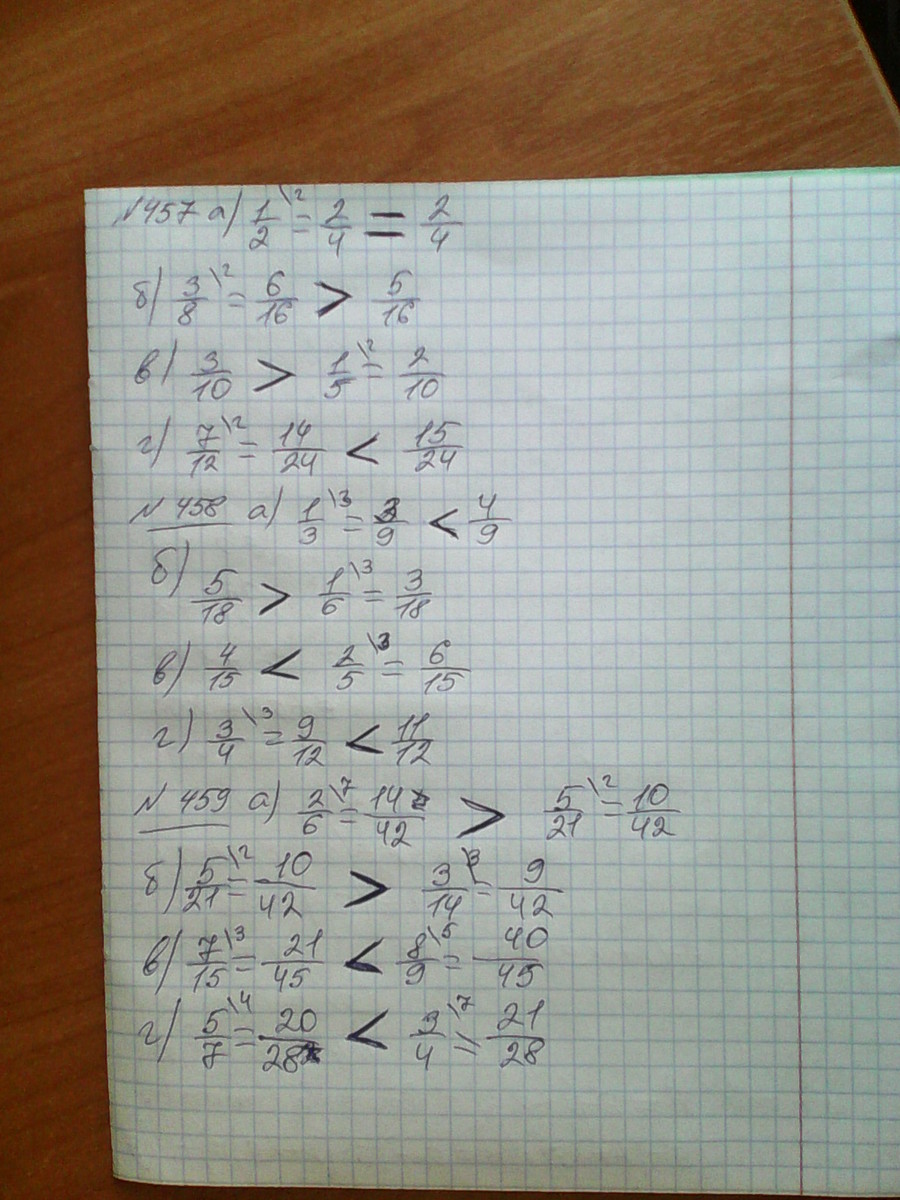 №457 а) 1/2 \2 = 2/4 = 2/4
б) 3/8 \2 = 6/16 > 5/16
в) 3/10 > 1/5 \2 = 2/10
г) 7/12 \2 = 14/24 < 15/24
№ 458 а) 1/3 \3 = 3/9 < 4/9
б) 5/18 > 1/6 \3 = 3/18
в) 4/15 < 2/5 \3 = 6/15
г) 3/4 \3 = 9/12 < 11/12
№ 459 а) 2/6 \7 = 14/42 > 5/21 \2 = 10/42
б) 5/21 \2 = 10/42 > 3/14 \3 = 9/42
в) 7/15 \3 = 21/45 < 8/9 \5 = 40/45
г) 5/7 \4 = 20/28 < 3/4 \7 = 21/28